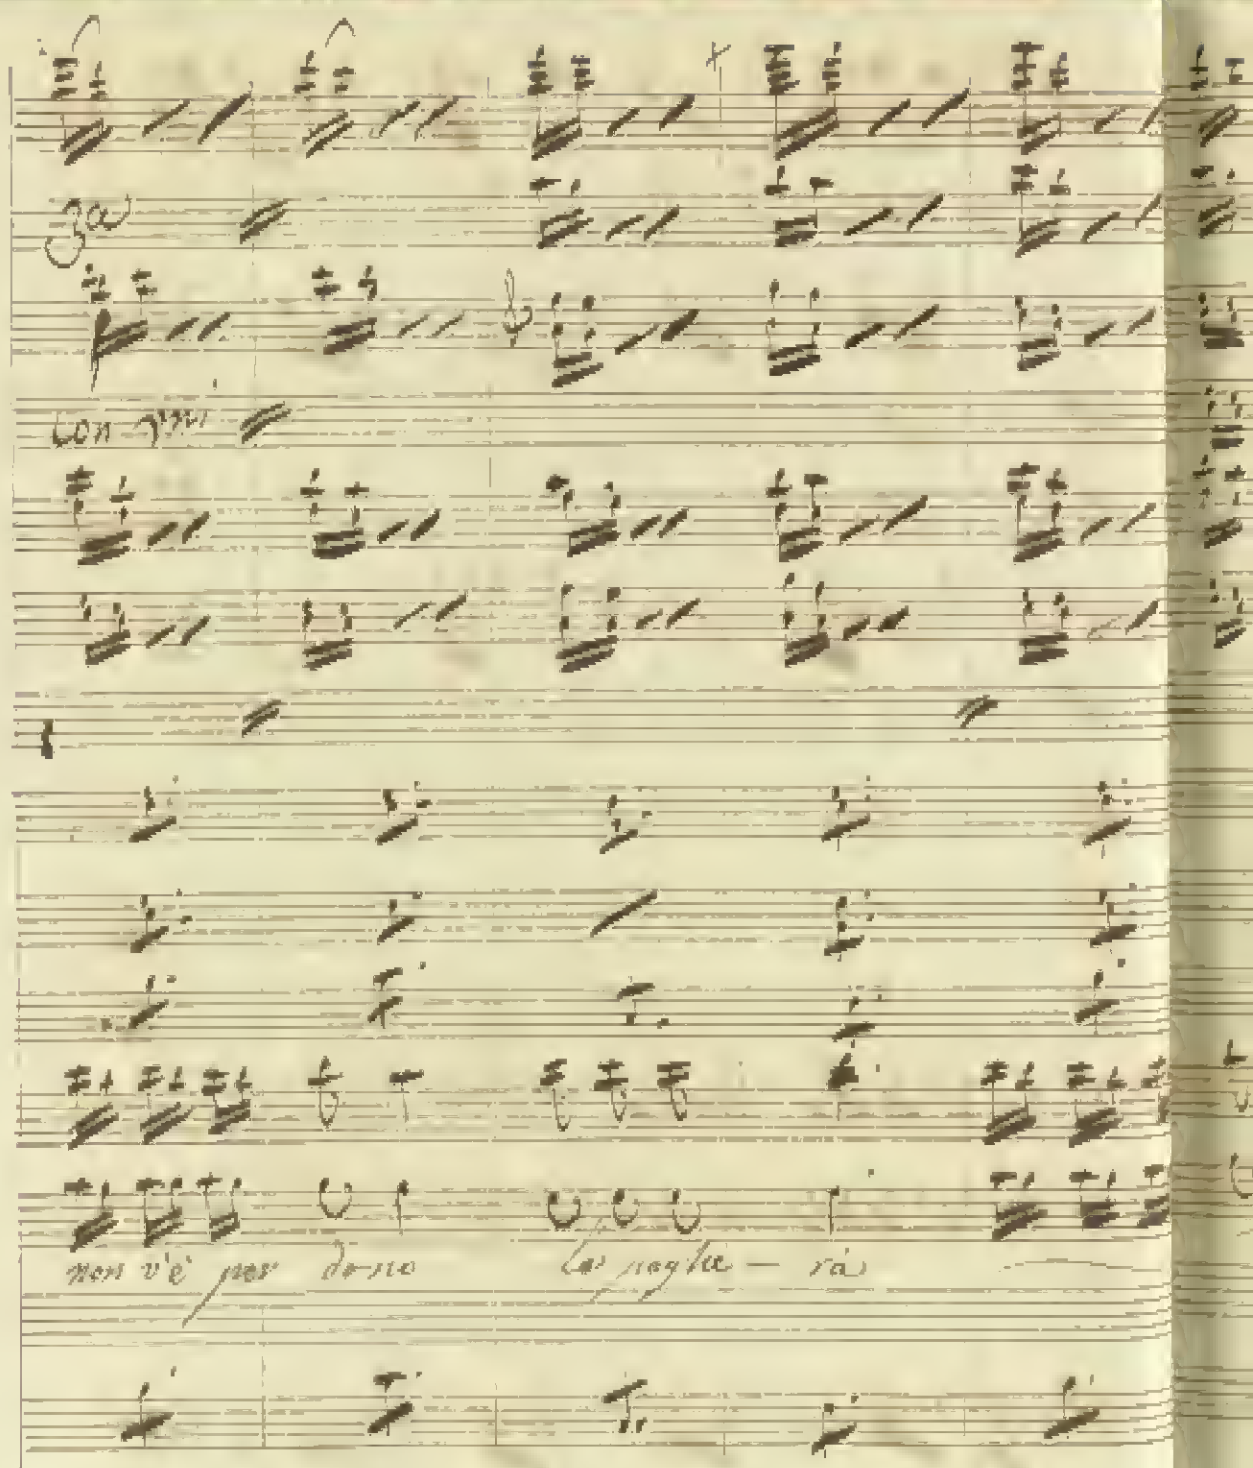 3a
Con Vni
non v'è per dono la paghe — rà